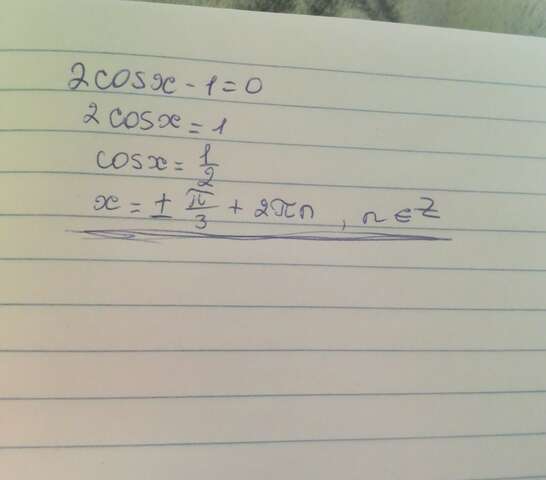 2cosx - 1 = 0
2cosx = 1
cosx = 1/2
x = ± π/3 + 2πn, n ∈ Z